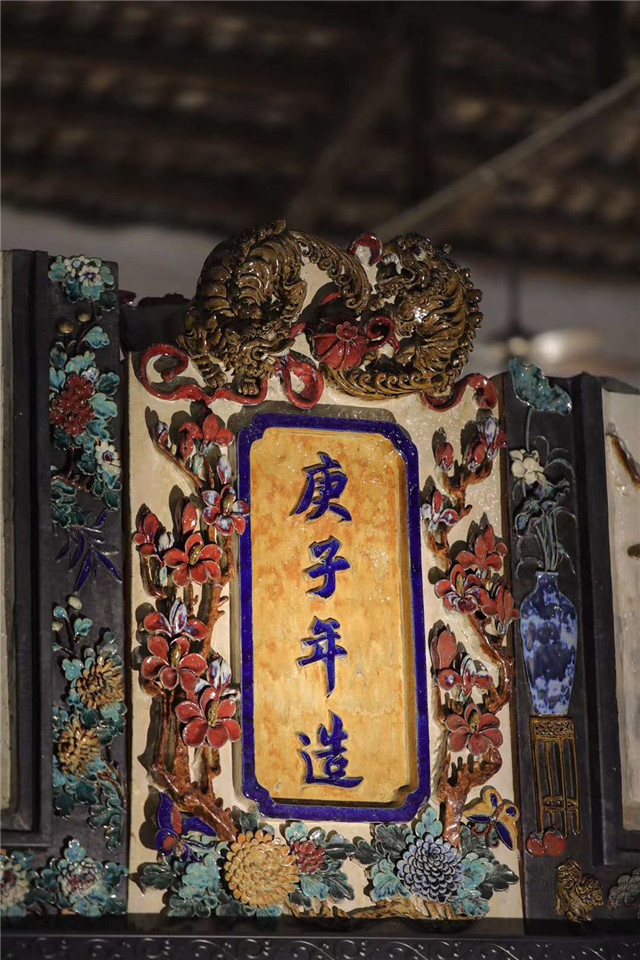 庚子年造